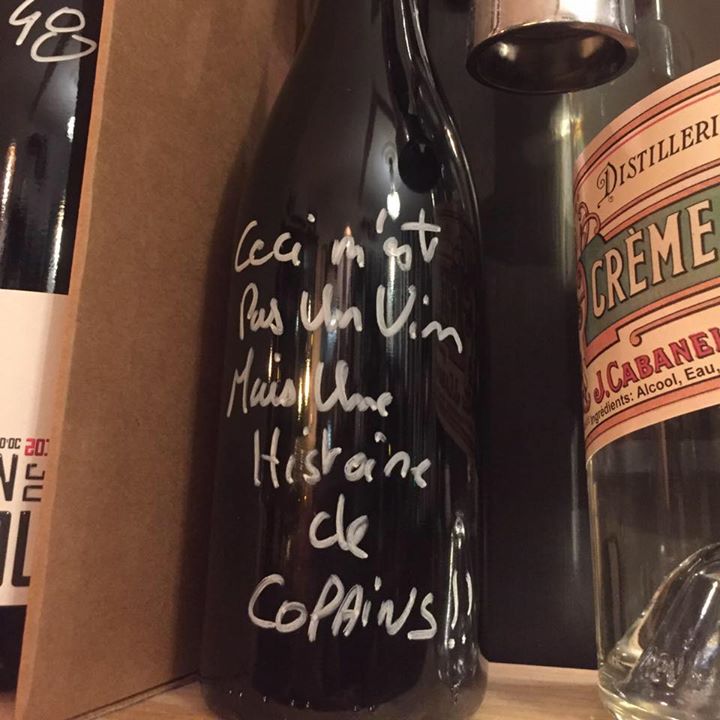 48
Ceci n'est
Pas Un Vin
Mais Une
Histoire
de
COPAINS!!
DISTILLERI
CRÈME
J. CABANEL
Ingredients: Alcool, Eau,